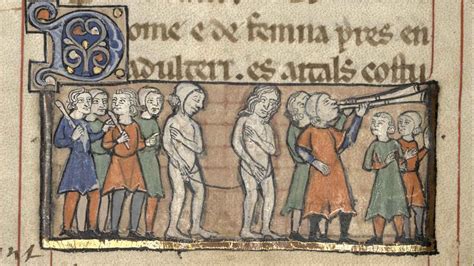 Dome e de femna pres en
adulteri. es aitals costu